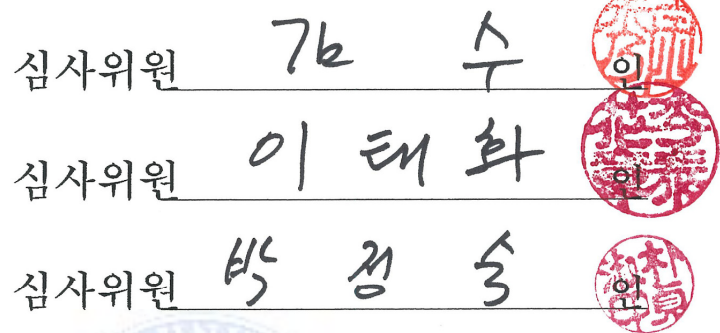 심사위원 김 수 인
심사위원 이 태 화 인
심사위원 박 정 숙 인